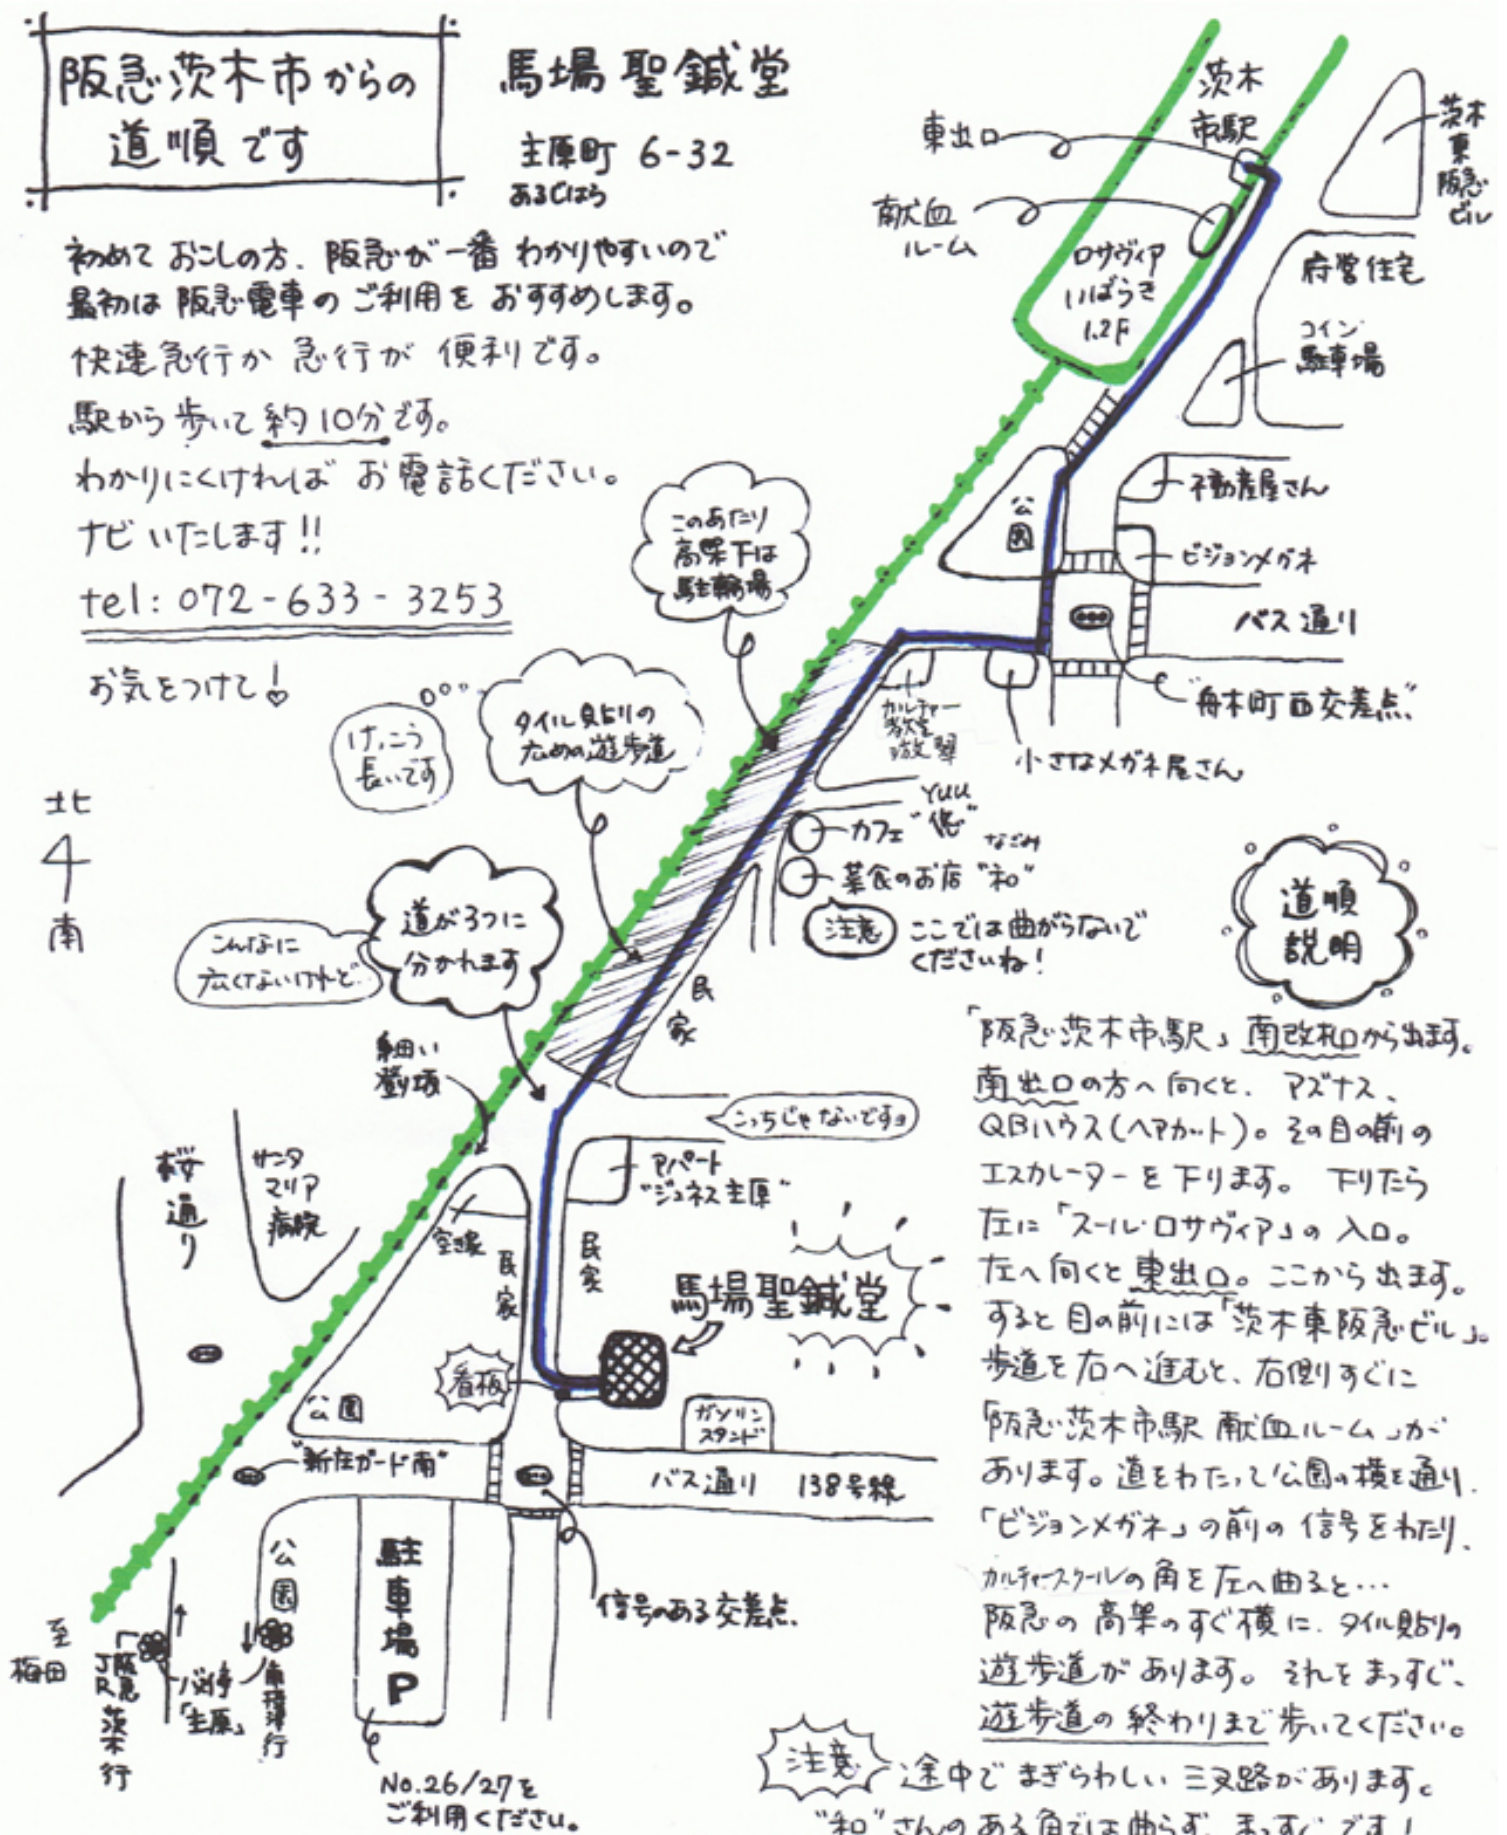 阪急茨木市からの
道順です
馬場聖鍼堂
主原町 6-32
あるじはら
初めて おこしの方、阪急が一番 わかりやすいので
最初は 阪急電車の ご利用を おすすめします。
快速急行か 急行が 便利です。
駅から 歩いて 約10分です。
わかりにくければ お電話ください。
ナビいたします!!
tel: 072-633-3253
お気をつけて!
茨木
市駅
東出口
献血
ルーム
ロサヴィア
いばらき
1.2F
茨木
東
阪急
ビル
府営住宅
コイン
駐車場
公
園
不動産屋さん
ビジョンメガネ
バス通り
"舟木町西交差点"
小さなメガネ屋さん
カルチャー
教室
このあたり
高架下は
駐輪場
タイル貼りの
広めの遊歩道
けっこう
長いです
yuu
カフェ"悠"
なごみ
菜食のお店"和"
注意
ここでは曲がらないで
くださいね!
民
家
北
南
道が3つに
分かれます
こんなに
広くないけれど…
細い
登り坂
こっちじゃないですョ
アパート
"ジュネス主原"
桜
通
り
サンタ
マリア
病院
空き家
民
家
民
家
馬場聖鍼堂
看板
公園
ガソリン
スタンド
"新庄ガード南"
バス通り 138号線
信号のある交差点
公
園
駐
車
場
P
No.26/27を
ご利用ください。
至
梅田
バス停
「主原」
道順
説明
「阪急茨木市駅」南改札口から出ます。
南出口の方へ向くと、アズナス、
QBハウス(ヘアカット)。その目の前の
エスカレーターを下ります。 下りたら
左に「スール・ロサヴィア」の入口。
左へ向くと東出口。ここから出ます。
すると目の前には「茨木東阪急ビル」。
歩道を右へ進むと、右側すぐに
「阪急茨木市駅 献血ルーム」が
あります。道をわたって公園の横を通り、
「ビジョンメガネ」の前の信号をわたり、
カルチャースクールの角を左へ曲ると…
阪急の高架のすぐ横に、タイル貼りの
遊歩道があります。それをまっすぐ、
遊歩道の終わりまで歩いてください。
注意
途中でまぎらわしい三叉路があります。
"和"さんのある角では曲らず、まっすぐです!